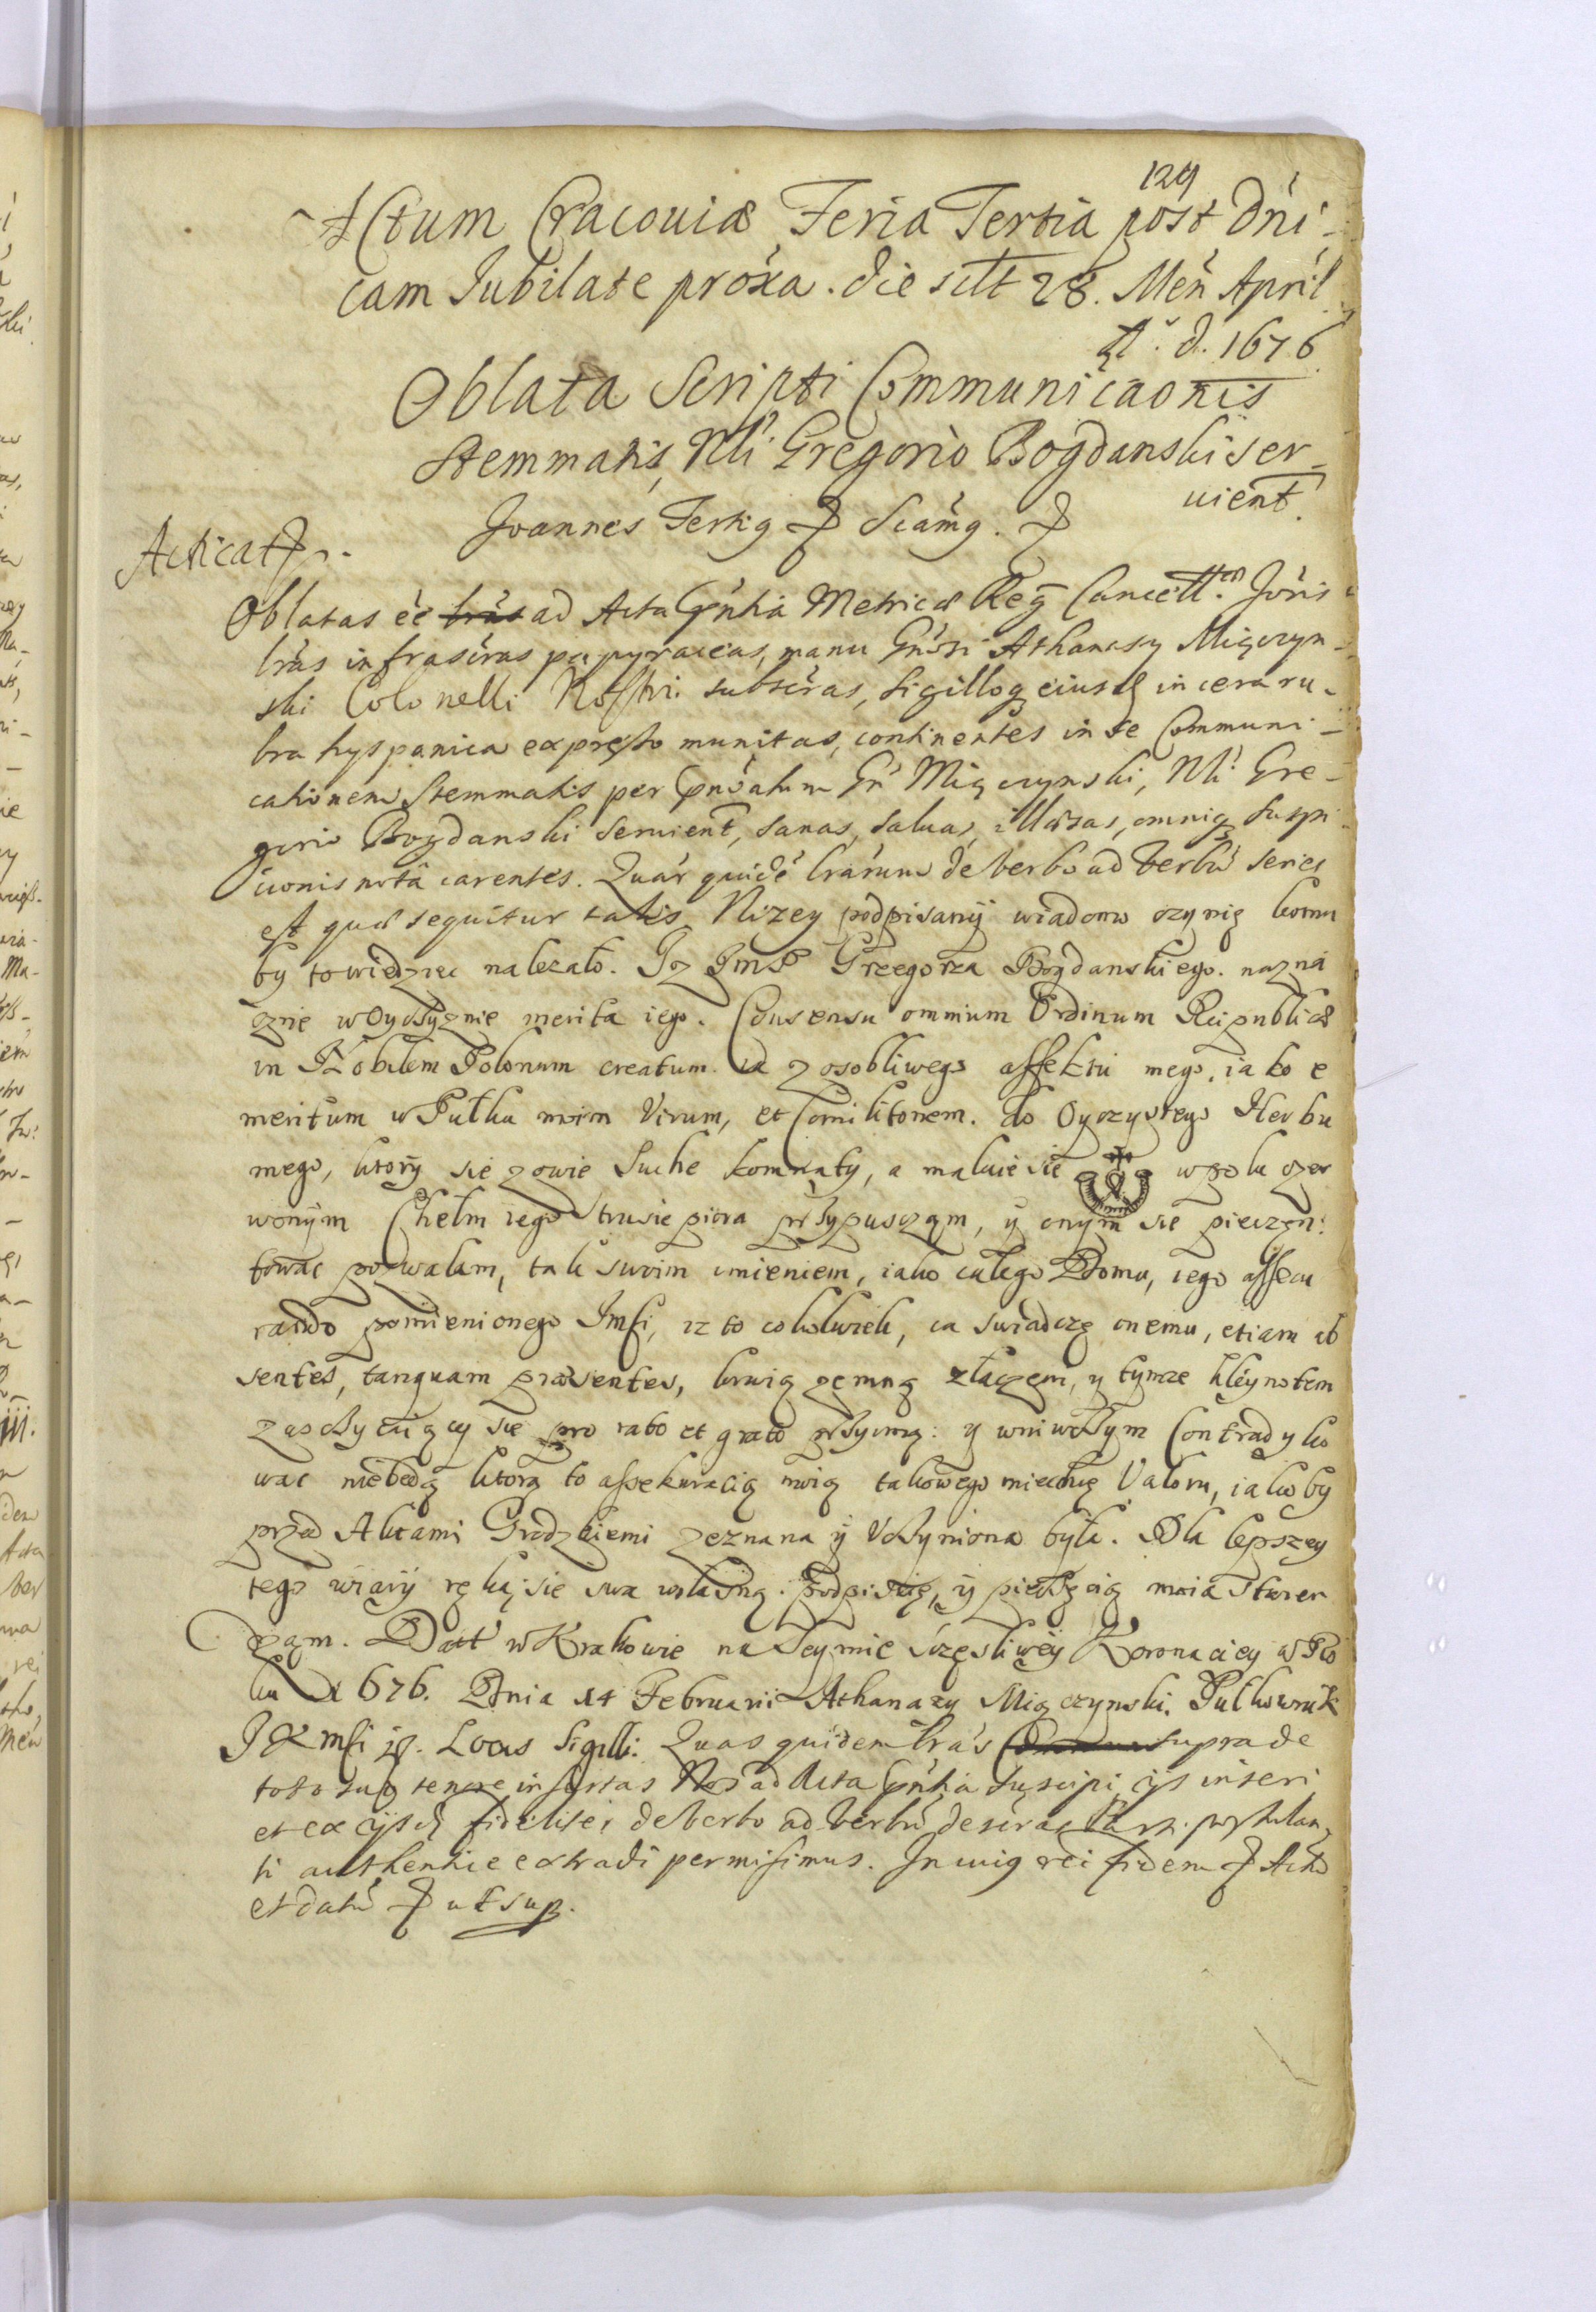 129
Actum Cracouiæ Feria Tertia post Dni-
cam Iubilate proxa. die scilt 28. Men April
Ao. d. 1676
Oblata Scripti Communicaonis
Stemmatis, Nli Gregorio Bogdanski ser-
uient.
Joannes Tertig Scamg.
Acticat
Oblatas ee ad Acta Gnlia Metricæ Reg Cancell. Joris
lras infrascras papyraceas, manu Gnosi Athanasy Miączyn-
ski Colonelli Nostri subscras, sigilloq eiusd in cera ru-
bra hyspanica expresso munitas, continentes in se Communi-
cationem Stemmatis per Gnosum Gn Miączynski, Nli Gre-
gorio Bogdanski seruient, sanas, saluas, illæsas, omniq suspi-
cionis nota carentes. Quar quide lrarum de verbo ad verbu series
est quæ sequitur talis Nizey podpisany wiadomo czynię komu
by to wiedziec nalezało. Iz ImP Grzegorza Bogdanskiego. nazna
cznie w Oyczyznie merita iego. Consensu omnium Ordinum Reipublicæ
in Nobilem Polonum creatum. ia z osobliwego affektu mego, iako e
meritum w Pułku moim Virum, et Comilitonem. do Oyczystego Herbu
mego, ktory się zowie Suche komnaty, a maluie sie w polu czer
wonym Chełm iego Strusie piora przypuszczam, y onym się pieczęn:
towac pozwalam, tak swoim imieniem, iako całego Domu, iego assecu
rando pomienionego Imsci, iz to cokolwiek, ia swiadczę onemu, etiam ab
sentes, tanquam præsentes, krwią zemną złączem, y tymze kleynotem
zasczycaiący się pro rato et grato przyimą: y wniwczym Contradyko
wac niebedą ktora to assekuracią moią takowego miecchcę Valoru, iakoby
przed Aktami Grodzkiemi zeznana y Vczyniona była. Dla lepszey
tego wiary ręką się swa własną. podpisuię, y pieczęcią moia stwier
dzam. Datt w Krakowie na Seymie sczęsliwey Koronaciey w Ro
ku 1676. Dnia 14 Februarii Athanazy Miączynski. Pułkownik
JKmsci Locus Sigilli. Quas quidem lras supra de
toto suo tenore insertas Nos ad Acta Gnlia suscipi, ijs inseri
et ex ijsd fideliter de verbo ad verbu descras Parti postulan-
ti authentice extradi permisimus. In cuiq rei fidem Actu
et datu ut sup.